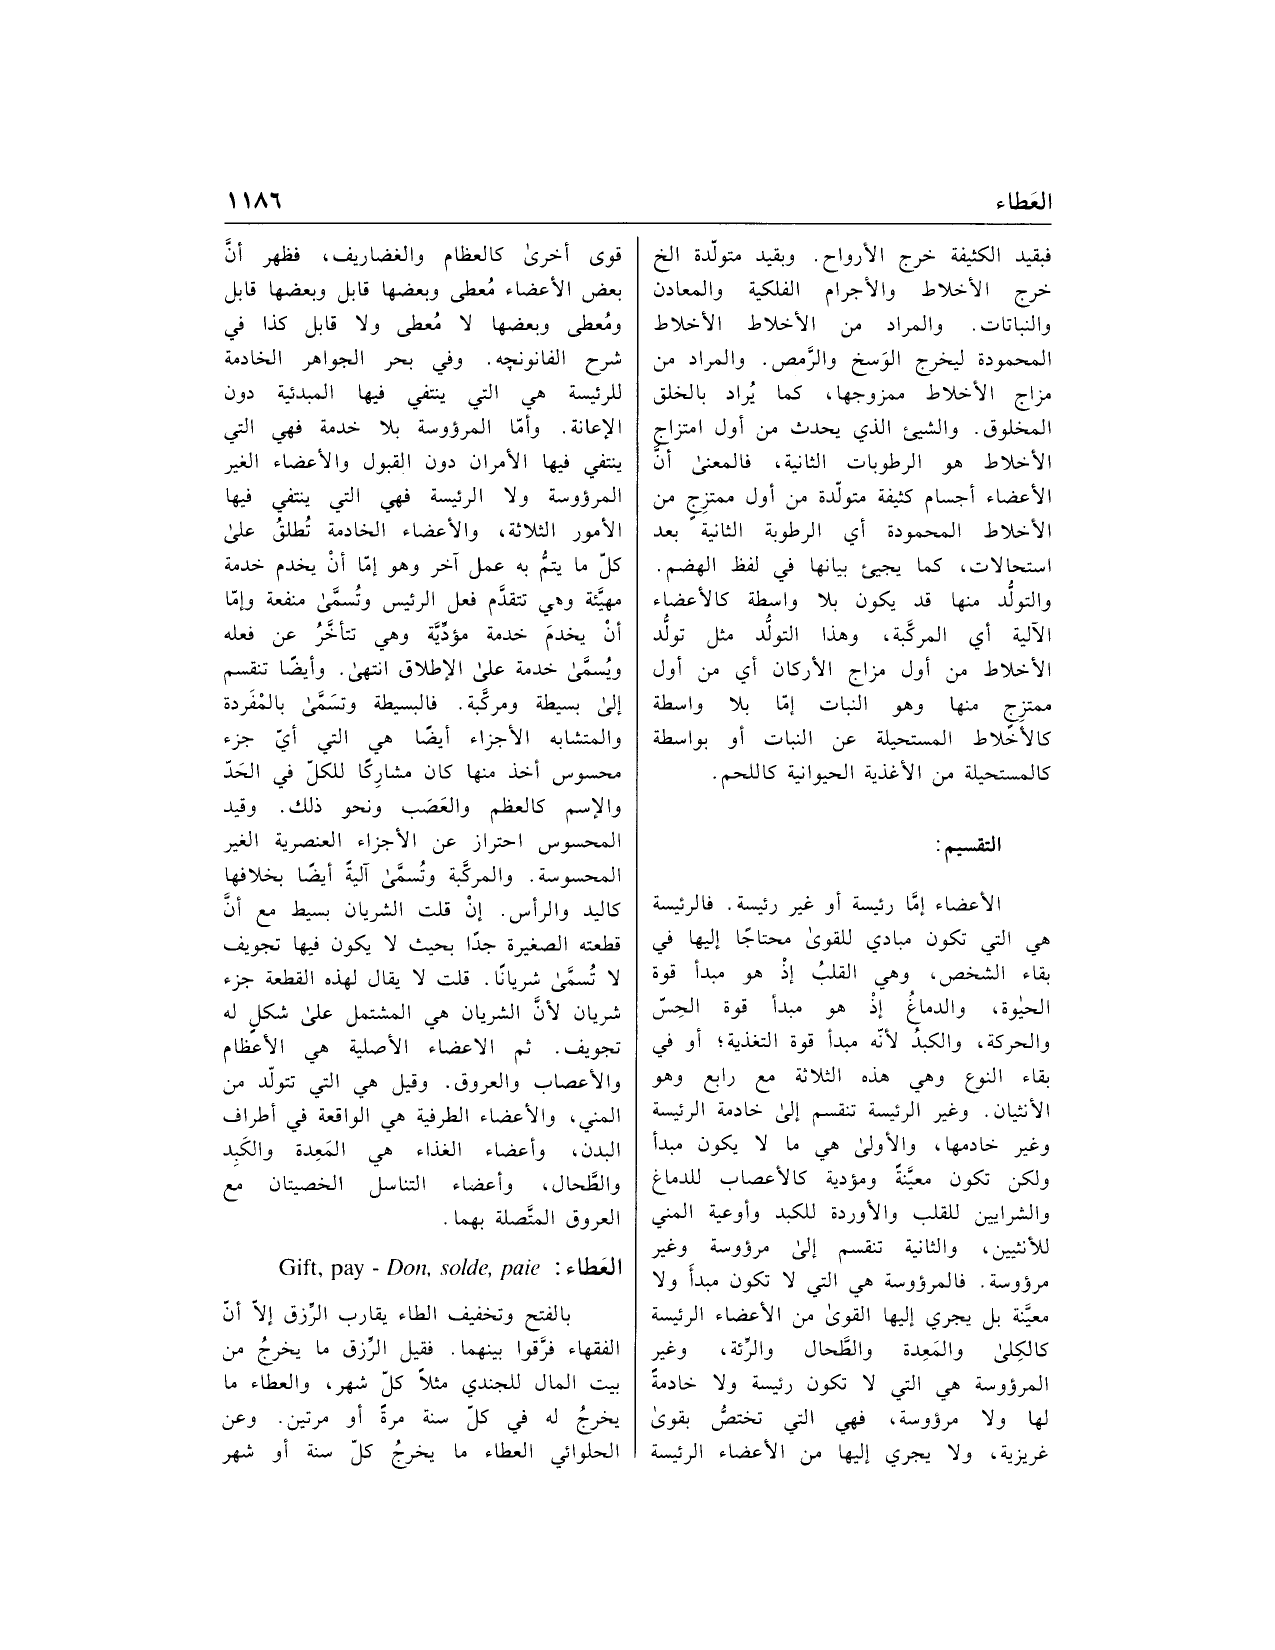 العَطاء
١١٨٦
فبقيد الكثيفة خرج الأرواح. وبقيد متولّدة الخ
خرج الأخلاط والأجرام الفلكية والمعادن
والنباتات. والمراد من الأخلاط الأخلاط
المحمودة ليخرج الوَسخ والرَّمص. والمراد من
مزاج الأخلاط ممزوجها، كما يُراد بالخلق
المخلوق. والشيئ الذي يحدث من أول امتزاج
الأخلاط هو الرطوبات الثانية، فالمعنىٰ أنَّ
الأعضاء أجسام كثيفة متولّدة من أول ممتزِجٍ من
الأخلاط المحمودة أي الرطوبة الثانية بعد
استحالات، كما يجيئ بيانها في لفظ الهضم.
والتولُّد منها قد يكون بلا واسطة كالأعضاء
الآلية أي المركَّبة، وهذا التولُّد مثل تولُّد
الأخلاط من أول مزاج الأركان أي من أول
ممتزِجٍ منها وهو النبات إمّا بلا واسطة
كالأخلاط المستحيلة عن النبات أو بواسطة
كالمستحيلة من الأغذية الحيوانية كاللحم.
التقسيم:
الأعضاء إمَّا رئيسة أو غير رئيسة. فالرئيسة
هي التي تكون مبادي للقوىٰ محتاجًا إليها في
بقاء الشخص، وهي القلبُ إذْ هو مبدأ قوة
الحيٰوة، والدماغُ إذْ هو مبدأ قوة الحِسّ
والحركة، والكبدُ لأنّه مبدأ قوة التغذية؛ أو في
بقاء النوع وهي هذه الثلاثة مع رابع وهو
الأنثيان. وغير الرئيسة تنقسم إلىٰ خادمة الرئيسة
وغير خادمها، والأولىٰ هي ما لا يكون مبدأ
ولكن تكون معيَّنةً ومؤدية كالأعصاب للدماغ
والشرايين للقلب والأوردة للكبد وأوعية المني
للأنثيين، والثانية تنقسم إلىٰ مرؤوسة وغير
مرؤوسة. فالمرؤوسة هي التي لا تكون مبدأً ولا
معيَّنة بل يجري إليها القوىٰ من الأعضاء الرئيسة
كالكِلىٰ والمَعِدة والطَّحال والرِّئة، وغير
المرؤوسة هي التي لا تكون رئيسة ولا خادمةً
لها ولا مرؤوسة، فهي التي تختصُّ بقوىٰ
غريزية، ولا يجري إليها من الأعضاء الرئيسة
قوى أخرىٰ كالعظام والغضاريف، فظهر أنَّ
بعض الأعضاء مُعطى وبعضها قابل وبعضها قابل
ومُعطى وبعضها لا مُعطى ولا قابل كذا في
شرح القانونچه. وفي بحر الجواهر الخادمة
للرئيسة هي التي ينتفي فيها المبدئية دون
الإعانة. وأمّا المرؤوسة بلا خدمة فهي التي
ينتفي فيها الأمران دون القبول والأعضاء الغير
المرؤوسة ولا الرئيسة فهي التي ينتفي فيها
الأمور الثلاثة، والأعضاء الخادمة تُطلقُ علىٰ
كلّ ما يتمُّ به عمل آخر وهو إمّا أنْ يخدم خدمة
مهيَّئة وهي تتقدَّم فعل الرئيس وتُسمَّىٰ منفعة وإمّا
أنْ يخدمَ خدمة مؤدِّيَّة وهي تتأخَّرُ عن فعله
ويُسمَّىٰ خدمة علىٰ الإطلاق انتهىٰ. وأيضًا تنقسم
إلىٰ بسيطة ومركَّبة. فالبسيطة وتسَمَّىٰ بالمْفَردة
والمتشابه الأجزاء أيضًا هي التي أيّ جزء
محسوس أخذ منها كان مشارِكًا للكلّ في الحَدّ
والإسم كالعظم والعَصَب ونحو ذلك. وقيد
المحسوس احتراز عن الأجزاء العنصرية الغير
المحسوسة. والمركَّبة وتُسمَّىٰ آليةً أيضًا بخلافها
كاليد والرأس. إنْ قلت الشريان بسيط مع أنَّ
قطعته الصغيرة جدًا بحيث لا يكون فيها تجويف
لا تُسمَّىٰ شريانًا. قلت لا يقال لهذه القطعة جزء
شريان لأنَّ الشريان هي المشتمل علىٰ شكلٍ له
تجويف. ثم الاعضاء الأصلية هي الأعظام
والأعصاب والعروق. وقيل هي التي تتولّد من
المني، والأعضاء الطرفية هي الواقعة في أطراف
البدن، وأعضاء الغذاء هي المَعِدة والكَبِد
والطَّحال، وأعضاء التناسل الخصيتان مع
العروق المتَّصلة بهما.
العَطاء: Gift, pay - Don, solde, paie
بالفتح وتخفيف الطاء يقارب الرِّزق إلاّ أنّ
الفقهاء فرَّقوا بينهما. فقيل الرِّزق ما يخرجُ من
بيت المال للجندي مثلاً كلّ شهر، والعطاء ما
يخرجُ له في كلّ سنة مرةً أو مرتين. وعن
الحلوائي العطاء ما يخرجُ كلّ سنة أو شهر